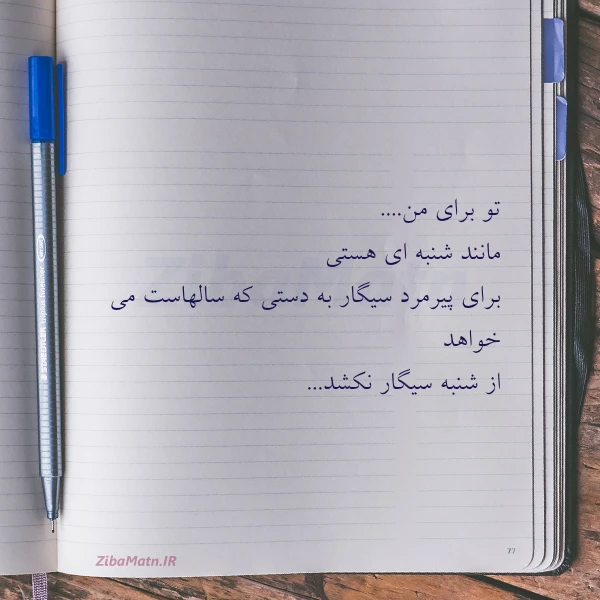 تو برای من....
مانند شنبه ای هستی
برای پیرمرد سیگار به دستی که سالهاست می
خواهد
از شنبه سیگار نکشد...
ZibaMatn.IR